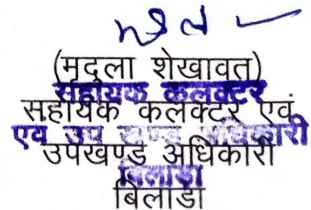 (मदुला शेखावत)
सहायक कलक्टर
सहायक कलक्टर एवं
एवं उप खण्ड अधिकारी
उपखण्ड अधिकारी
बिलाड़ा
बिलाडा